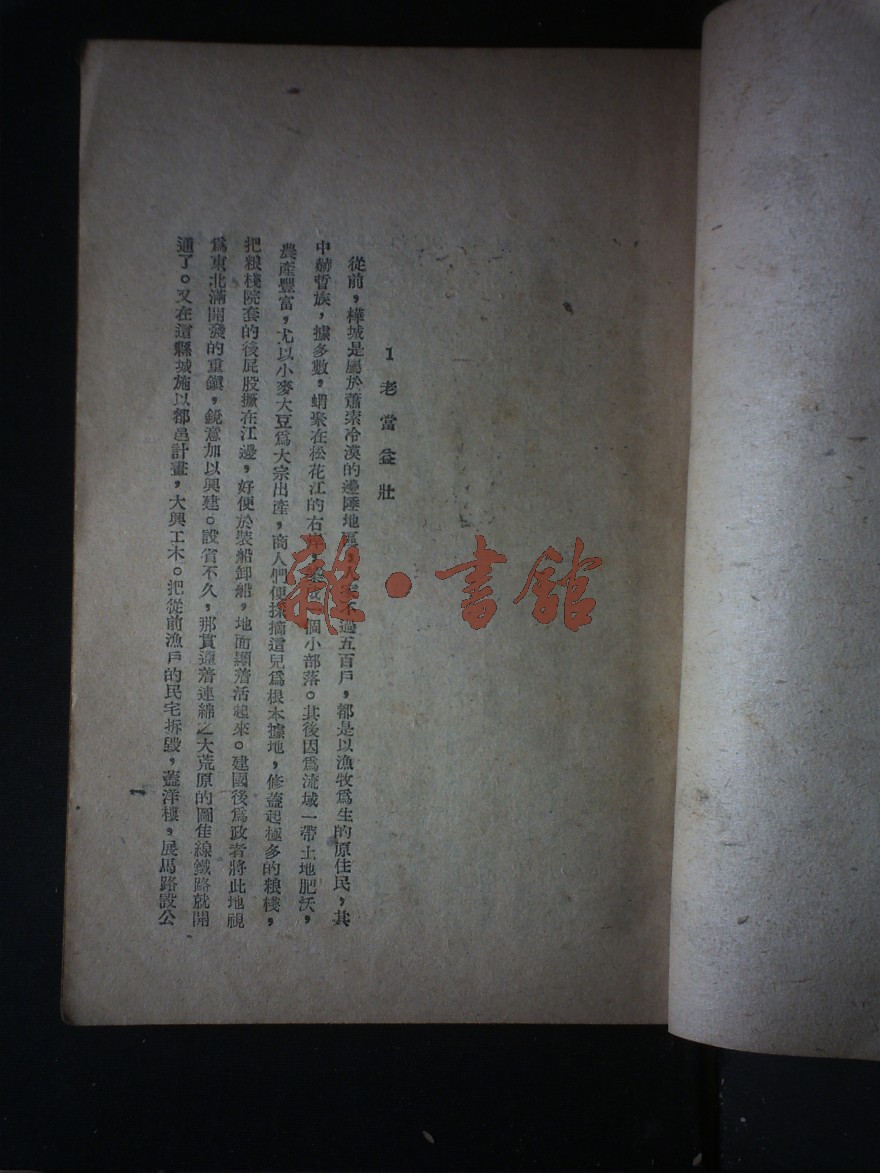 1 老當益壯
從前，樺城是屬於蕭索冷漠的邊陲地區，不過五百戶，都是以漁牧爲生的原住民，其
中赫哲族，據多數，蝟聚在松花江的右個小部落。其後因爲流域一帶土地肥沃，
農產豐富，尤以小麥大豆爲大宗出產，商人們便採摘這兒爲根本據地，修蓋起極多的粮棧，
把粮棧院套的後屁股撅在江邊，好便於裝船卸船，地面顯着活起來。建國後爲政者將此地視
爲東北滿開發的重鎭，銳意加以興建。設省不久，那貫連着連綿之大荒原的圖佳線鐵路就開
通了。又在這縣城施以都邑計畫，大興工木。把從前漁戶的民宅拆毀，蓋洋樓，展馬路設公
1
雜·書館